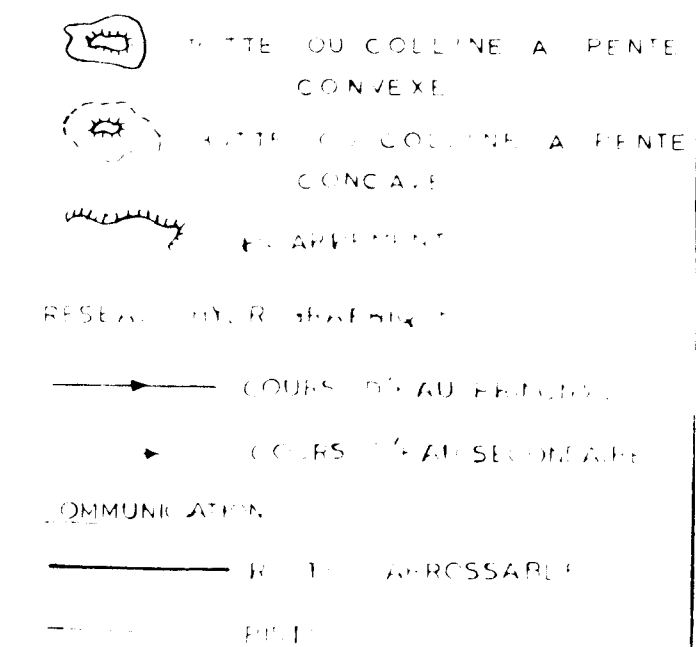 BUTTE OU COLLINE A PENTE
CONVEXE
BUTTE OU COLLINE A PENTE
CONCAVE
ESCARPEMENT
RESEAU HYDROGRAPHIQUE
COURS D'EAU PRINCIPAL
COURS D'EAU SECONDAIRE
COMMUNICATION
ROUTE CARROSSABLE
PISTE